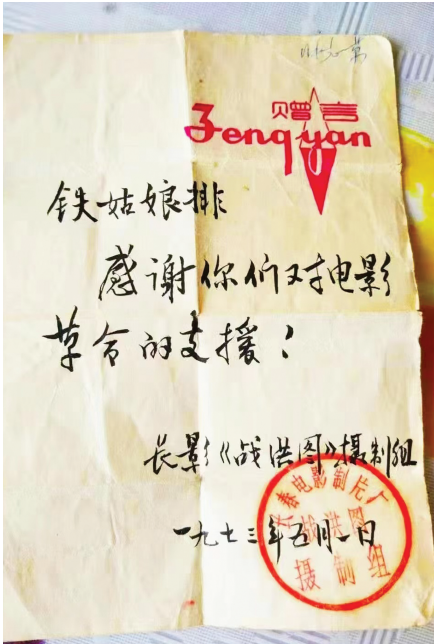 赠言
Zengyan
铁姑娘排
感谢你们对电影
革命的支援！
长影《战洪图》摄制组
一九七三年五月一日
长春电影制片厂
战洪图
摄制组